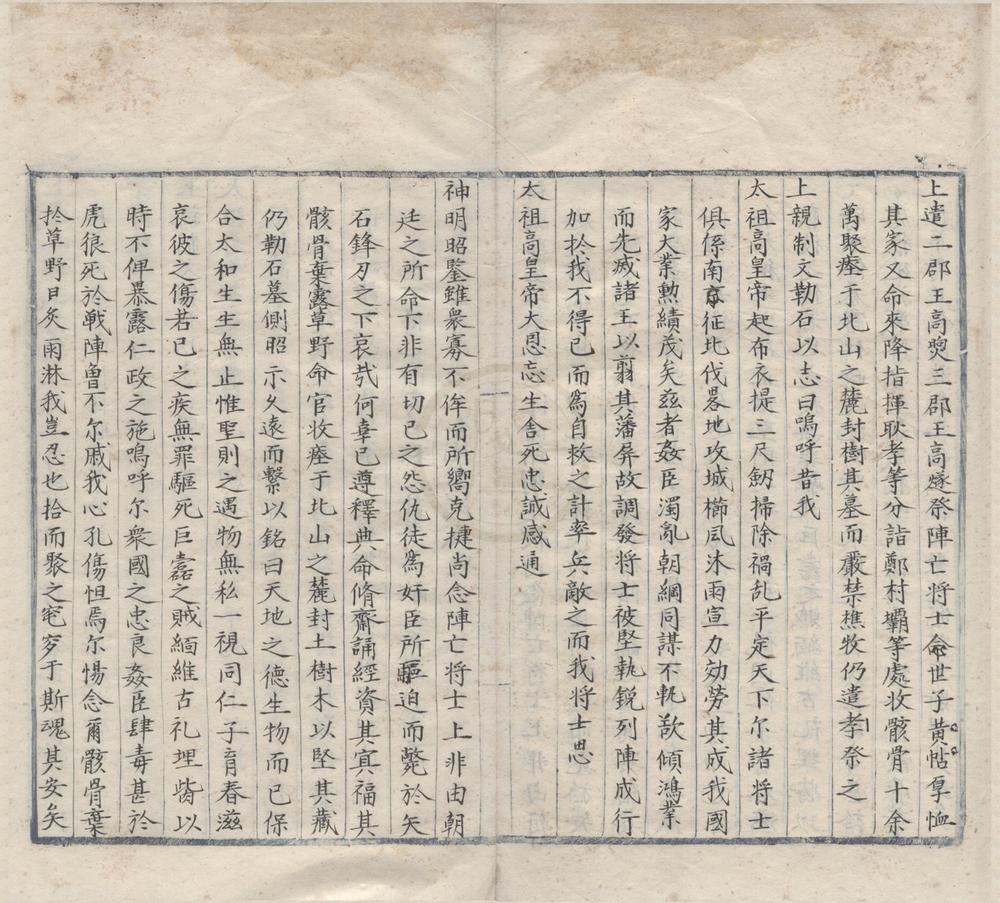 上遣二郡王高煚三郡王高燧祭陣亡将士命世子黄帖厚恤
其家又命來降指揮耿孝等分詣鄭村壩等處收骸骨十余
萬聚瘞于北山之麓封樹其墓而嚴禁樵牧仍遣孝祭之
上親制文勒石以志曰嗚呼昔我
太祖高皇帝起布衣提三尺劒掃除禍乱平定天下尔諸将士
俱係南京征北伐畧地攻城櫛風沐雨宣力効勞其成我國
家大業勲績茂矣兹者姦臣濁亂朝綱同謀不軌歆傾鴻業
而先烕諸王以翦其藩屏故調發将士被堅執鋭列陣成行
加扵我不得已而為自救之計率兵敵之而我将士思
太祖高皇帝大恩忘生舎死忠誠感通
神明昭鑒雖衆寡不侔而所嚮克捷尚念陣亡将士上非由朝
廷之所命下非有切已之怨仇徒為奸臣所驅迫而斃於矢
石鋒刃之下哀㢤何辜已遵釋典命脩齋誦經資其㝠福其
骸骨棄露草野命官收瘞于北山之麓封土樹木以堅其藏
仍勒石墓側昭示久遠而繫以銘曰天地之德生物而已保
合太和生生無止惟聖則之遇物無私一視同仁子育春滋
哀彼之傷若已之疾無罪驅死巨蠧之賊緬維古礼埋胔以
時不俾暴露仁政之施嗚呼尔衆國之忠良姦臣肆毒甚於
虎狼死於戰陣曽不尔戚我心孔傷怛焉尔惕念爾骸骨棄
扵草野日炙雨淋我豈忍也拾而聚之窀穸于斯魂其安矣